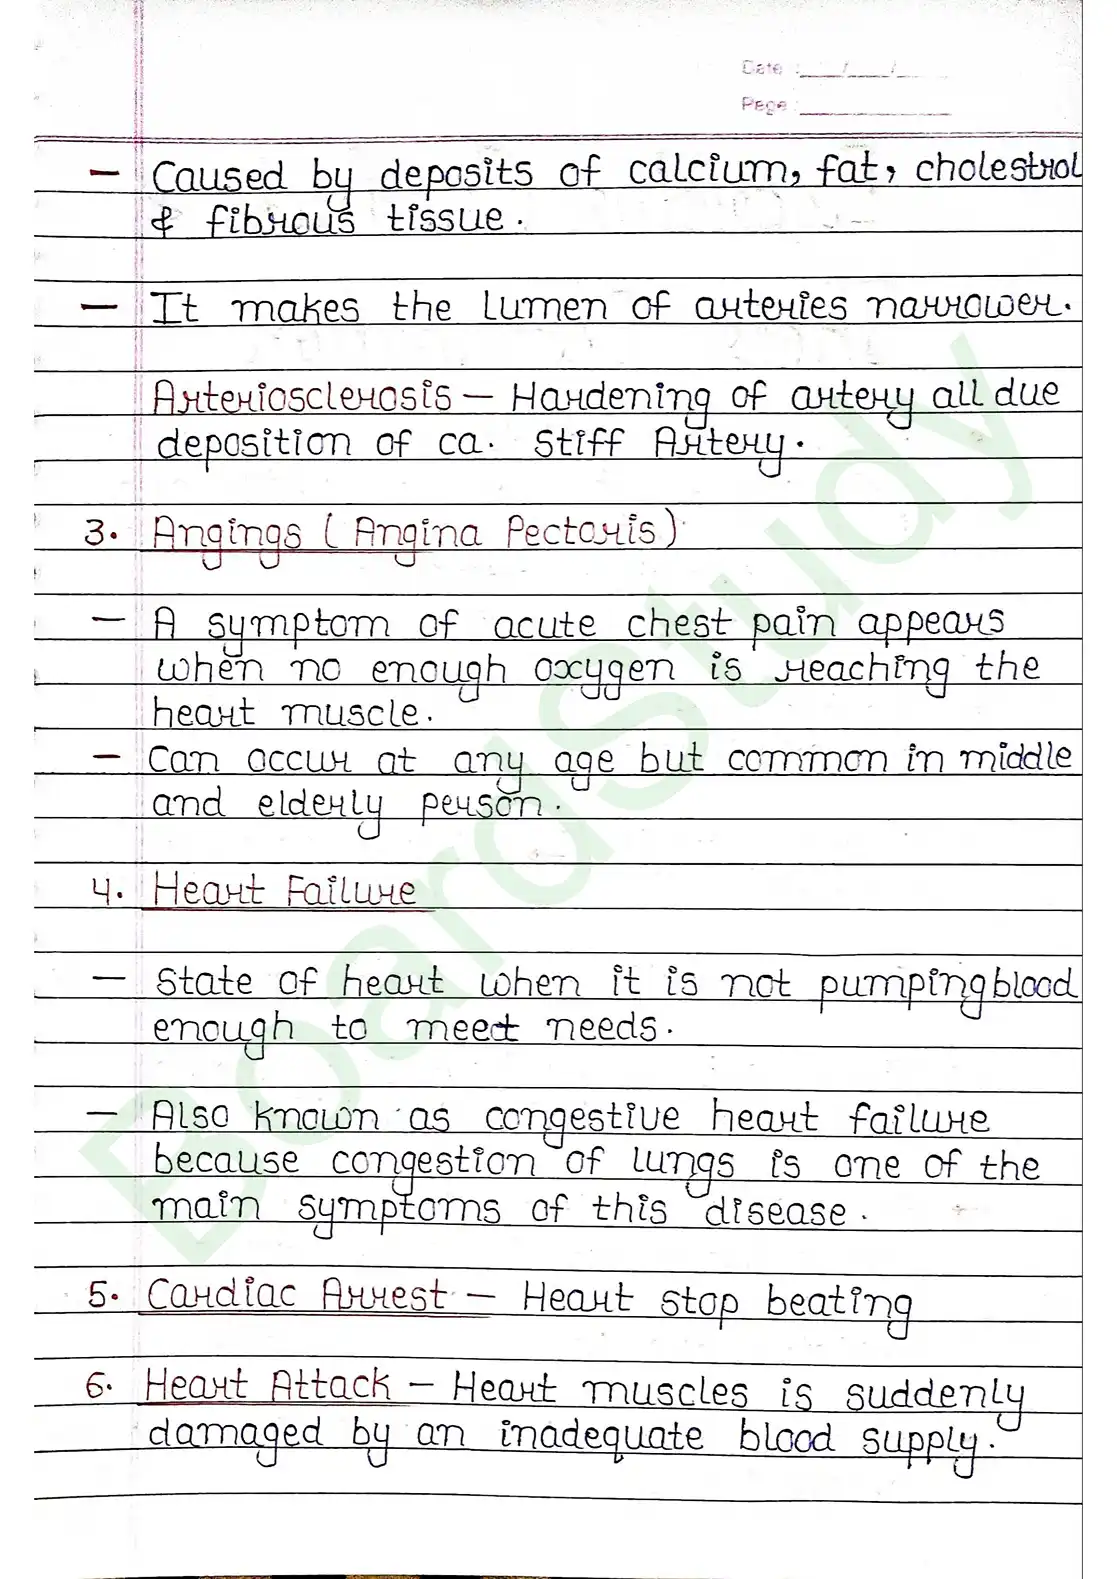 Date :___/___/___
Page :___________
– Caused by deposits of calcium, fat, cholestrol
& fibrous tissue.
– It makes the lumen of arteries narrower.
Arteriosclerosis – Hardening of artery all due
deposition of ca. Stiff Artery.
3. Angings (Angina Pectoris)
– A symptom of acute chest pain appears
when no enough oxygen is reaching the
heart muscle.
– Can occur at any age but common in middle
and elderly person.
4. Heart Failure
– State of heart when it is not pumping blood
enough to meet needs.
– Also known as congestive heart failure
because congestion of lungs is one of the
main symptoms of this disease.
5. Cardiac Arrest – Heart stop beating
6. Heart Attack – Heart muscles is suddenly
damaged by an inadequate blood supply.
BoardStudy